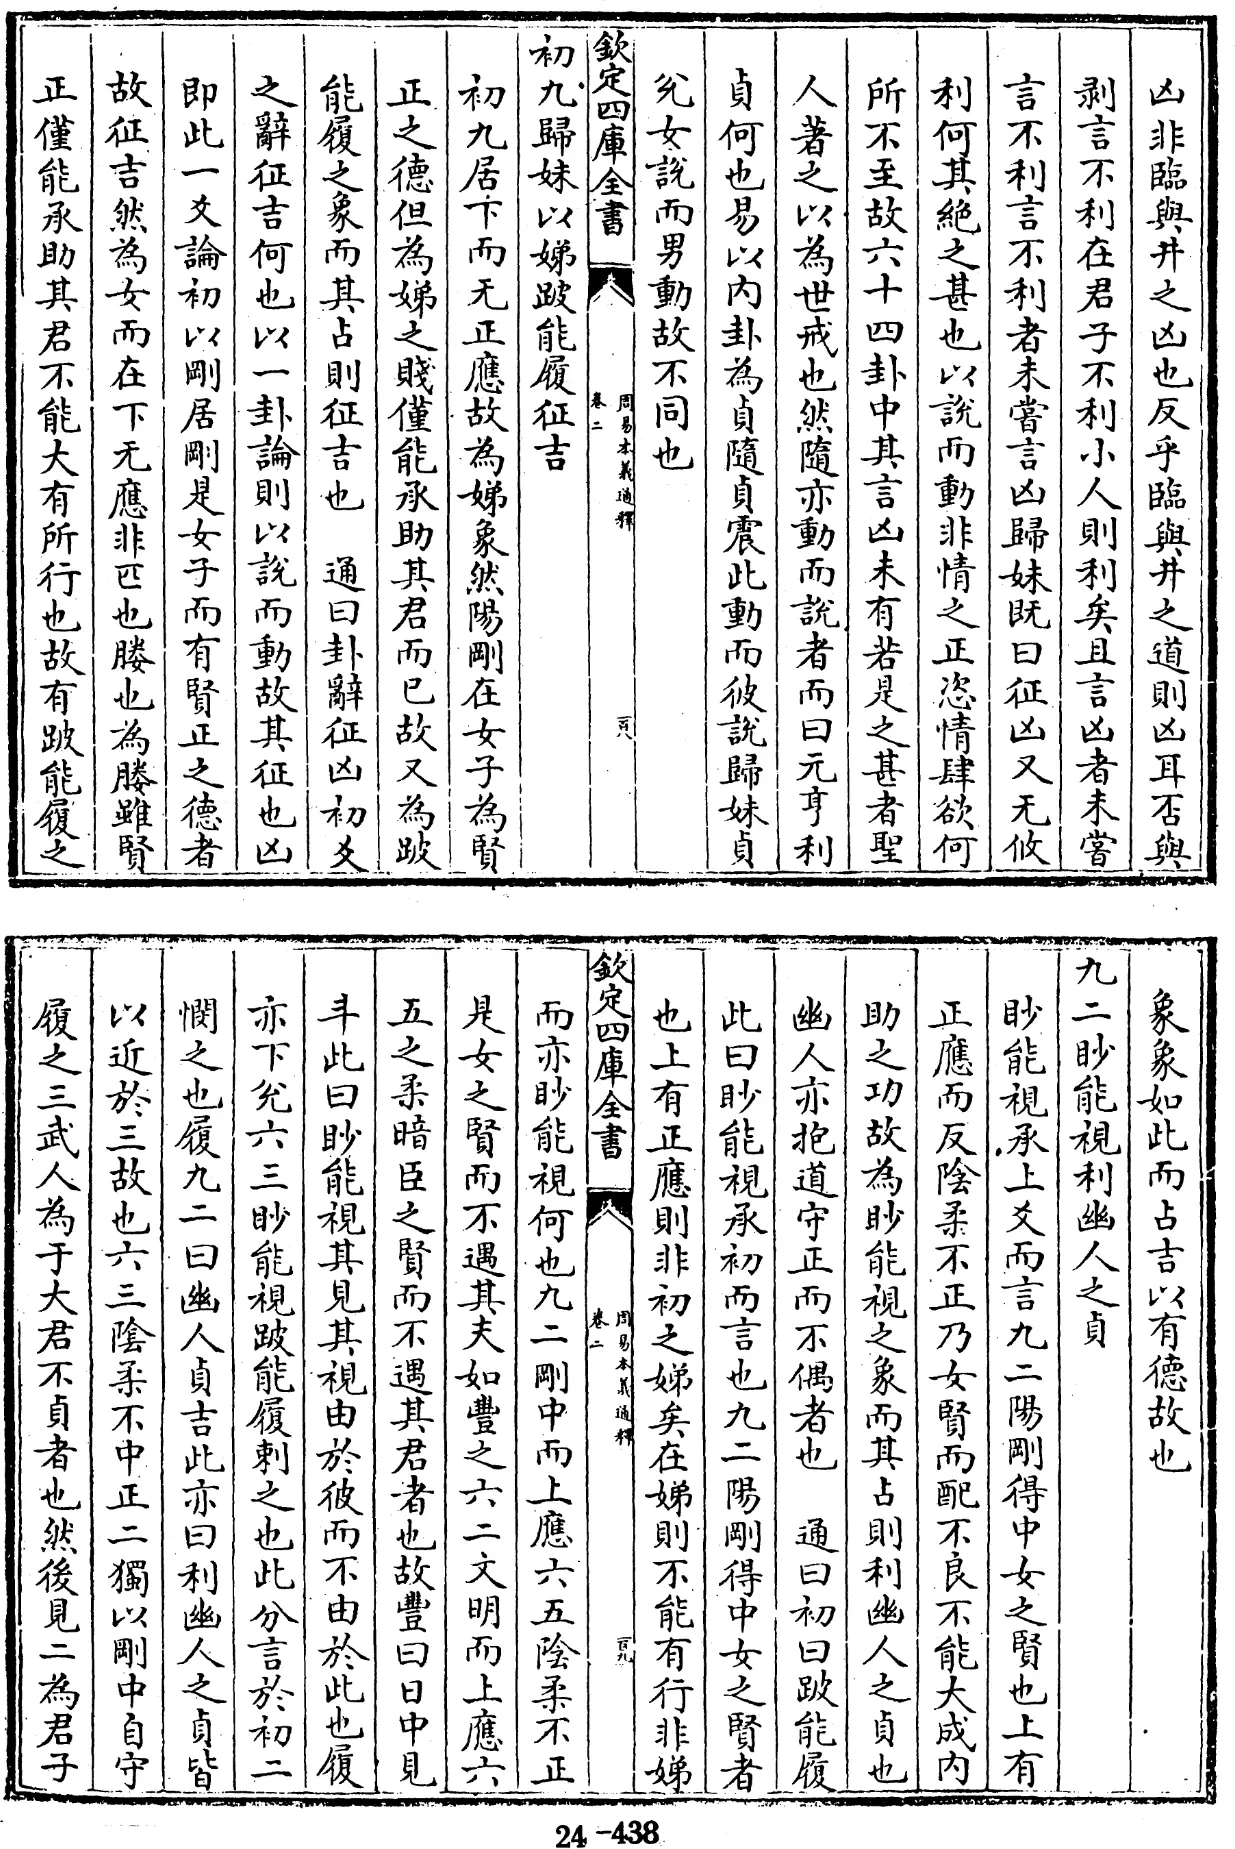 凶非臨與井之凶也反乎臨與井之道則凶耳否與
剥言不利在君子不利小人則利矣且言凶者未嘗
言不利言不利者未嘗言凶歸妹既曰征凶又无攸
利何其絶之甚也以說而動非情之正恣情肆欲何
所不至故六十四卦中其言凶未有若是之甚者聖
人著之以為世戒也然隨亦動而說者而曰元亨利
貞何也易以内卦為貞隨貞震此動而彼說歸妹貞
兊女說而男動故不同也
欽定四庫全書
周易本義通釋
卷二
百八
初九歸妹以娣跛能履征吉
初九居下而无正應故為娣象然陽剛在女子為賢
正之德但為娣之賤僅能承助其君而已故又為跛
能履之象而其占則征吉也　通曰卦辭征凶初爻
之辭征吉何也以一卦論則以說而動故其征也凶
即此一爻論初以剛居剛是女子而有賢正之德者
故征吉然為女而在下无應非匹也媵也為媵雖賢
正僅能承助其君不能大有所行也故有跛能履之
象象如此而占吉以有德故也
九二眇能視利幽人之貞
眇能視承上爻而言九二陽剛得中女之賢也上有
正應而反陰柔不正乃女賢而配不良不能大成内
助之功故為眇能視之象而其占則利幽人之貞也
幽人亦抱道守正而不偶者也　通曰初曰跛能履
此曰眇能視承初而言也九二陽剛得中女之賢者
也上有正應則非初之娣矣在娣則不能有行非娣
欽定四庫全書
周易本義通釋
卷二
百九
而亦眇能視何也九二剛中而上應六五陰柔不正
是女之賢而不遇其夫如豐之六二文明而上應六
五之柔暗臣之賢而不遇其君者也故豐曰日中見
斗此曰眇能視其見其視由於彼而不由於此也履
亦下兊六三眇能視跛能履刺之也此分言於初二
憫之也履九二曰幽人貞吉此亦曰利幽人之貞皆
以近於三故也六三陰柔不中正二獨以剛中自守
履之三武人為于大君不貞者也然後見二為君子
24-438